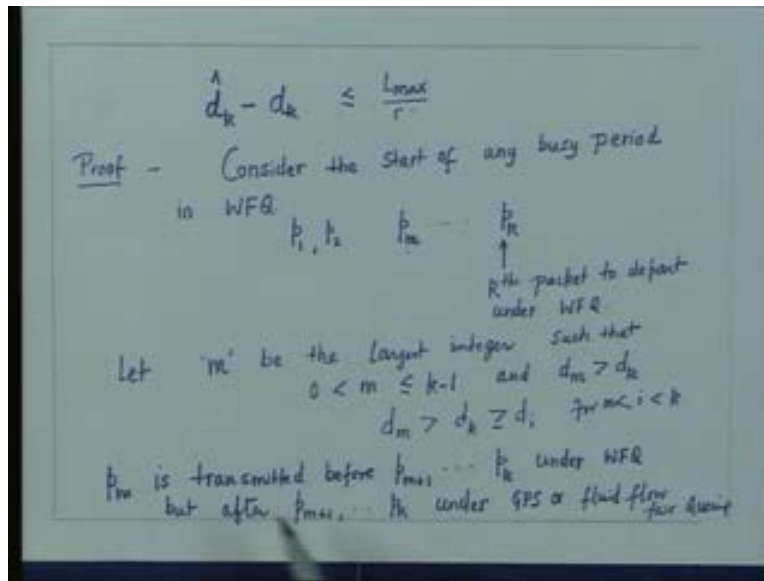 d̂k - dk ≤ Lmax/r
Proof - Consider the start of any busy period
in WFQ
p1, p2 pm ... pk
↑
kth packet to depart
under WFQ
Let 'm' be the largest integer such that
0 < m ≤ k-1 and dm > dk
dm > dk ≥ di for m < i < k
pm is transmitted before pm+1 ... pk under WFQ
but after pm+1, ... pk under GPS or fluid flow
fair queuing